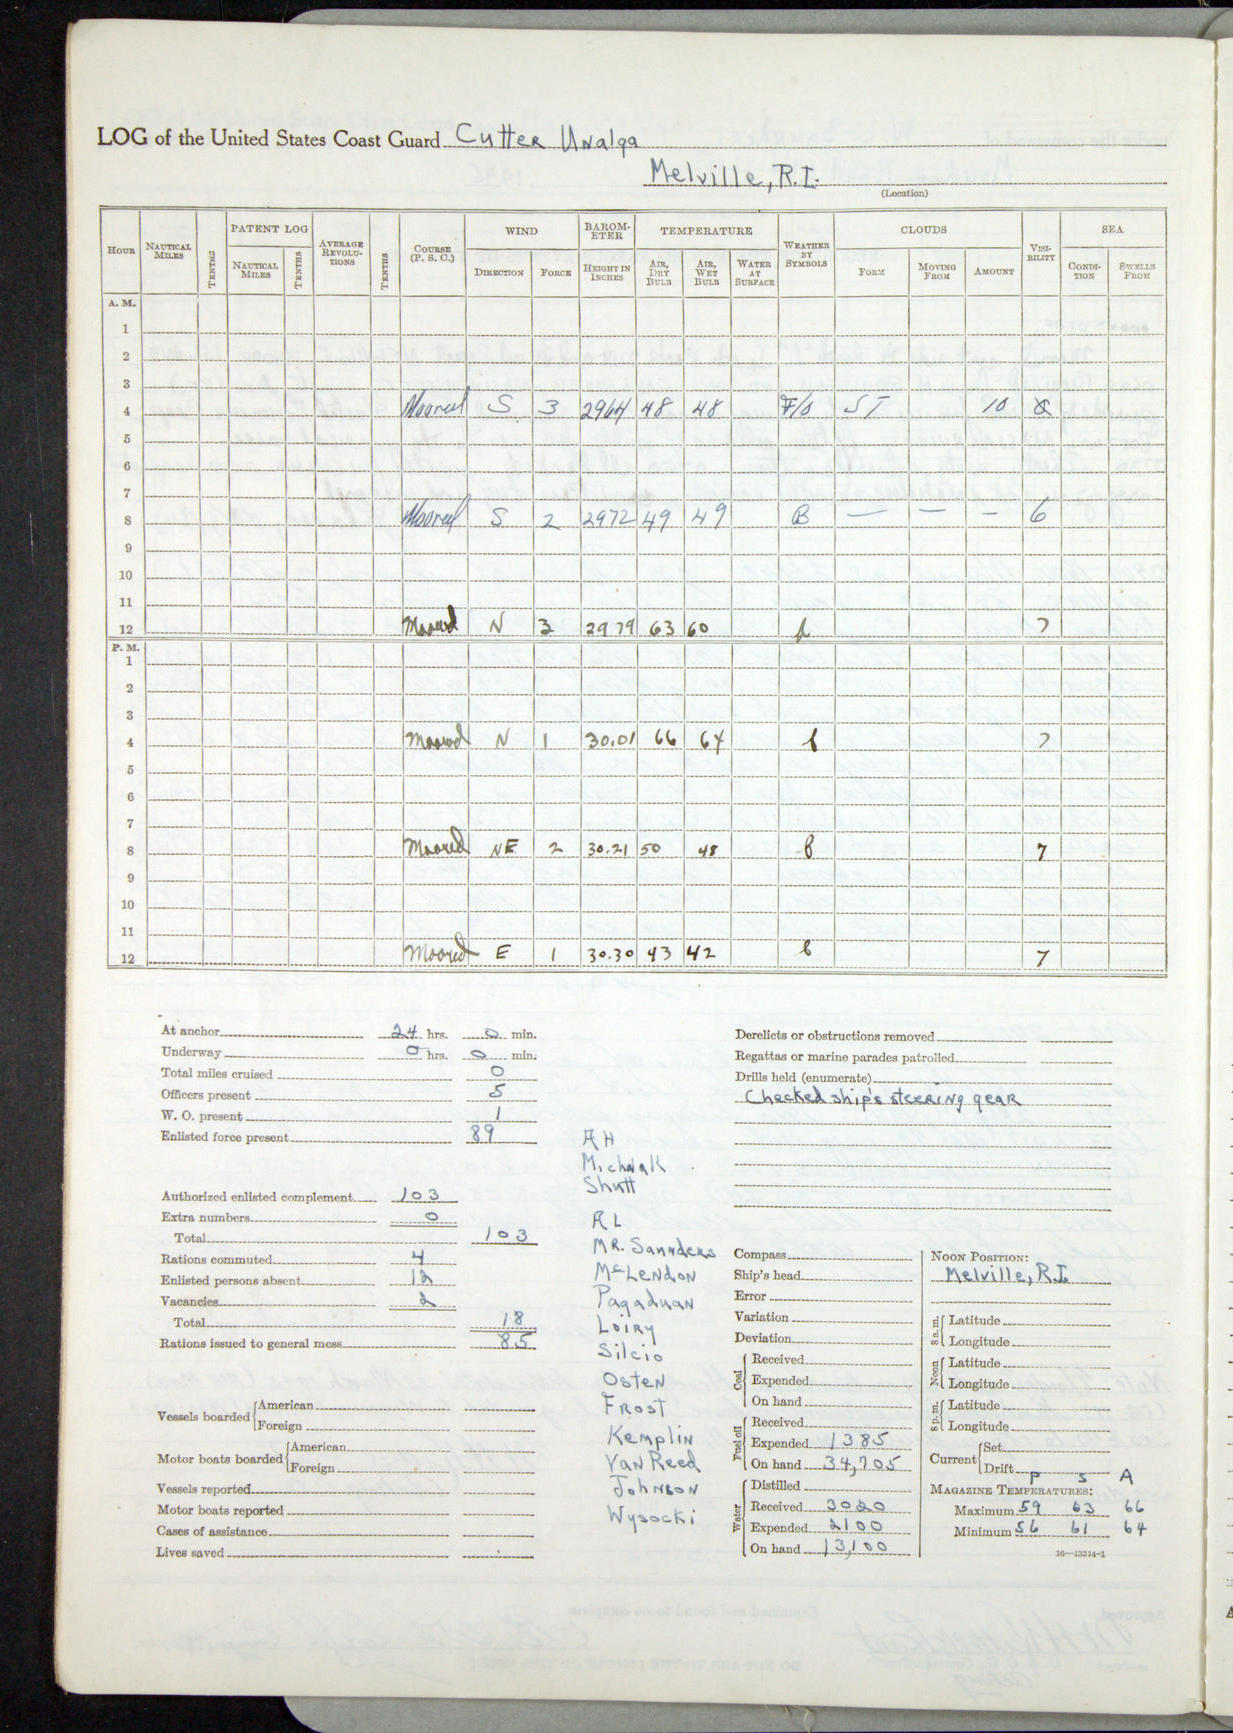 LOG of the United States Coast Guard Cutter Unalga
Melville, R.I.
(Location)
HOUR NAUTICAL MILES TENTHS PATENT LOG NAUTICAL MILES TENTHS AVERAGE REVOLUTIONS TENTHS COURSE (P. S. C.) WIND DIRECTION FORCE BAROMETER HEIGHT IN INCHES TEMPERATURE AIR, DRY BULB AIR, WET BULB WATER AT SURFACE WEATHER BY SYMBOLS CLOUDS FORM MOVING FROM AMOUNT VISIBILITY SEA CONDITION SWELLS FROM
A. M.
1
2
3
4 Moored S 3 2964 48 48 F/O ST 10
5
6
7
8 Moored S 2 2972 49 49 B — — — 6
9
10
11
12 Moored N 3 2979 63 60 b 7
P. M.
1
2
3
4 Moored N 1 30.01 66 64 b 7
5
6
7
8 Moored NE 2 30.21 50 48 b 7
9
10
11
12 Moored E 1 30.30 43 42 b 7
At anchor 24 hrs. 0 min.
Underway 0 hrs. 0 min.
Total miles cruised 0
Officers present 5
W. O. present 1
Enlisted force present 89
Authorized enlisted complement 103
Extra numbers 0
Total 103
Rations commuted 4
Enlisted persons absent 12
Vacancies 2
Total 18
Rations issued to general mess 85
Vessels boarded American
Foreign
Motor boats boarded American
Foreign
Vessels reported
Motor boats reported
Cases of assistance
Lives saved
AH
Michnak
Shutt
AL
Mr. Saunders
McLendon
Pagaduan
Loiry
Silcio
Osten
Frost
Kemplin
Van Reed
Johnson
Wysocki
Derelicts or obstructions removed
Regattas or marine parades patrolled
Drills held (enumerate)
Checked ship's steering gear
Compass
Ship's head
Error
Variation
Deviation
Coal
Received
Expended
On hand
Fuel oil
Received
Expended 1385
On hand 34,705
Water
Distilled
Received 3020
Expended 2100
On hand 13,100
NOON POSITION:
Melville, R.I.
8 a. m. Latitude
Longitude
Noon Latitude
Longitude
8 p. m. Latitude
Longitude
Current Set
Drift
P S A
MAGAZINE TEMPERATURES:
Maximum 59 63 66
Minimum 56 61 64
16—13214-1